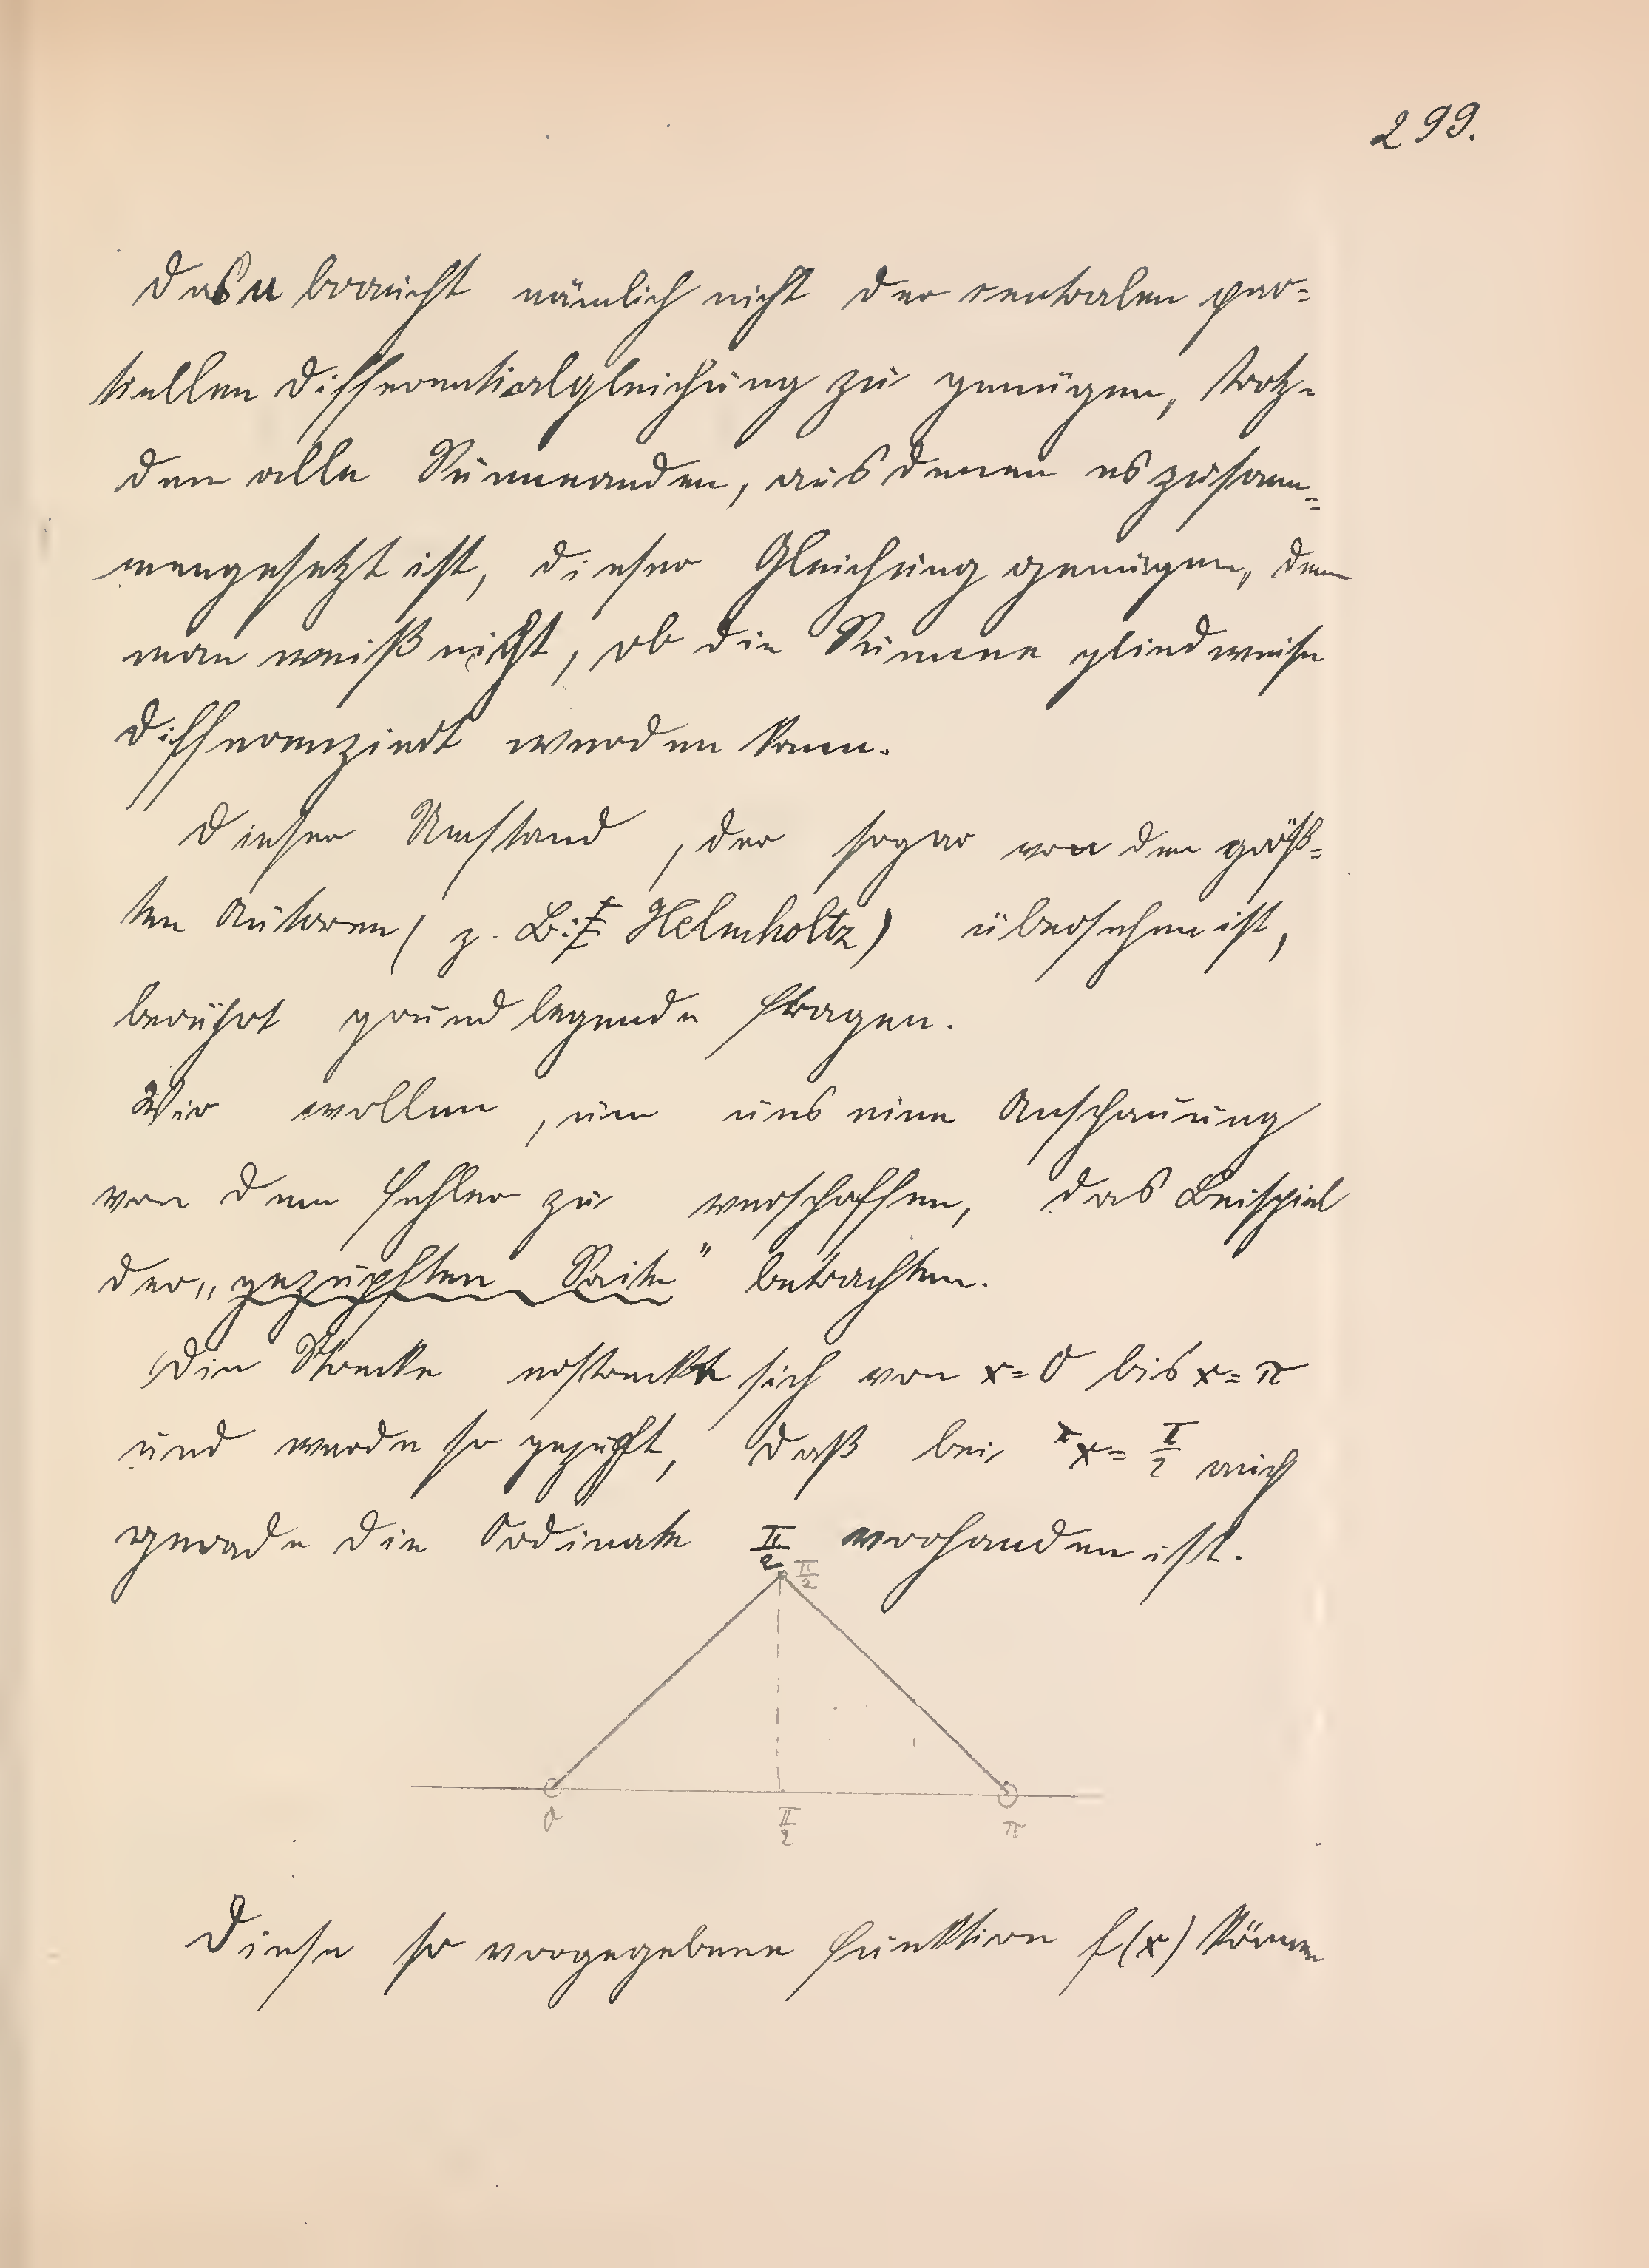 299.
Das u braucht nämlich nicht der centralen par=
tiellen Differentialgleichung zu genügen, trotz=
dem alle Summanden, aus denen es zusam=
mengesetzt ist, dieser Gleichung genügen, denn
man weiß nicht, ob die Summe gliedweise
differenziert werden kann.
Dieser Umstand, der sogar von den größ=
ten Autoren (z. B. Helmholtz) übersehen ist,
berührt grundlegende Fragen.
Wir wollen, um uns eine Anschauung
von dem Fehler zu verschaffen, das Beispiel
der „gezupften Saite" betrachten.
Die Strecke erstreckt sich von x=0 bis x=π
und werde so gezupft, daß bei x= π/2 auch
gerade die Ordinate π/2 vorhanden ist.
π/2
0 π/2 π
Diese so vorgegebene Funktion f(x) können